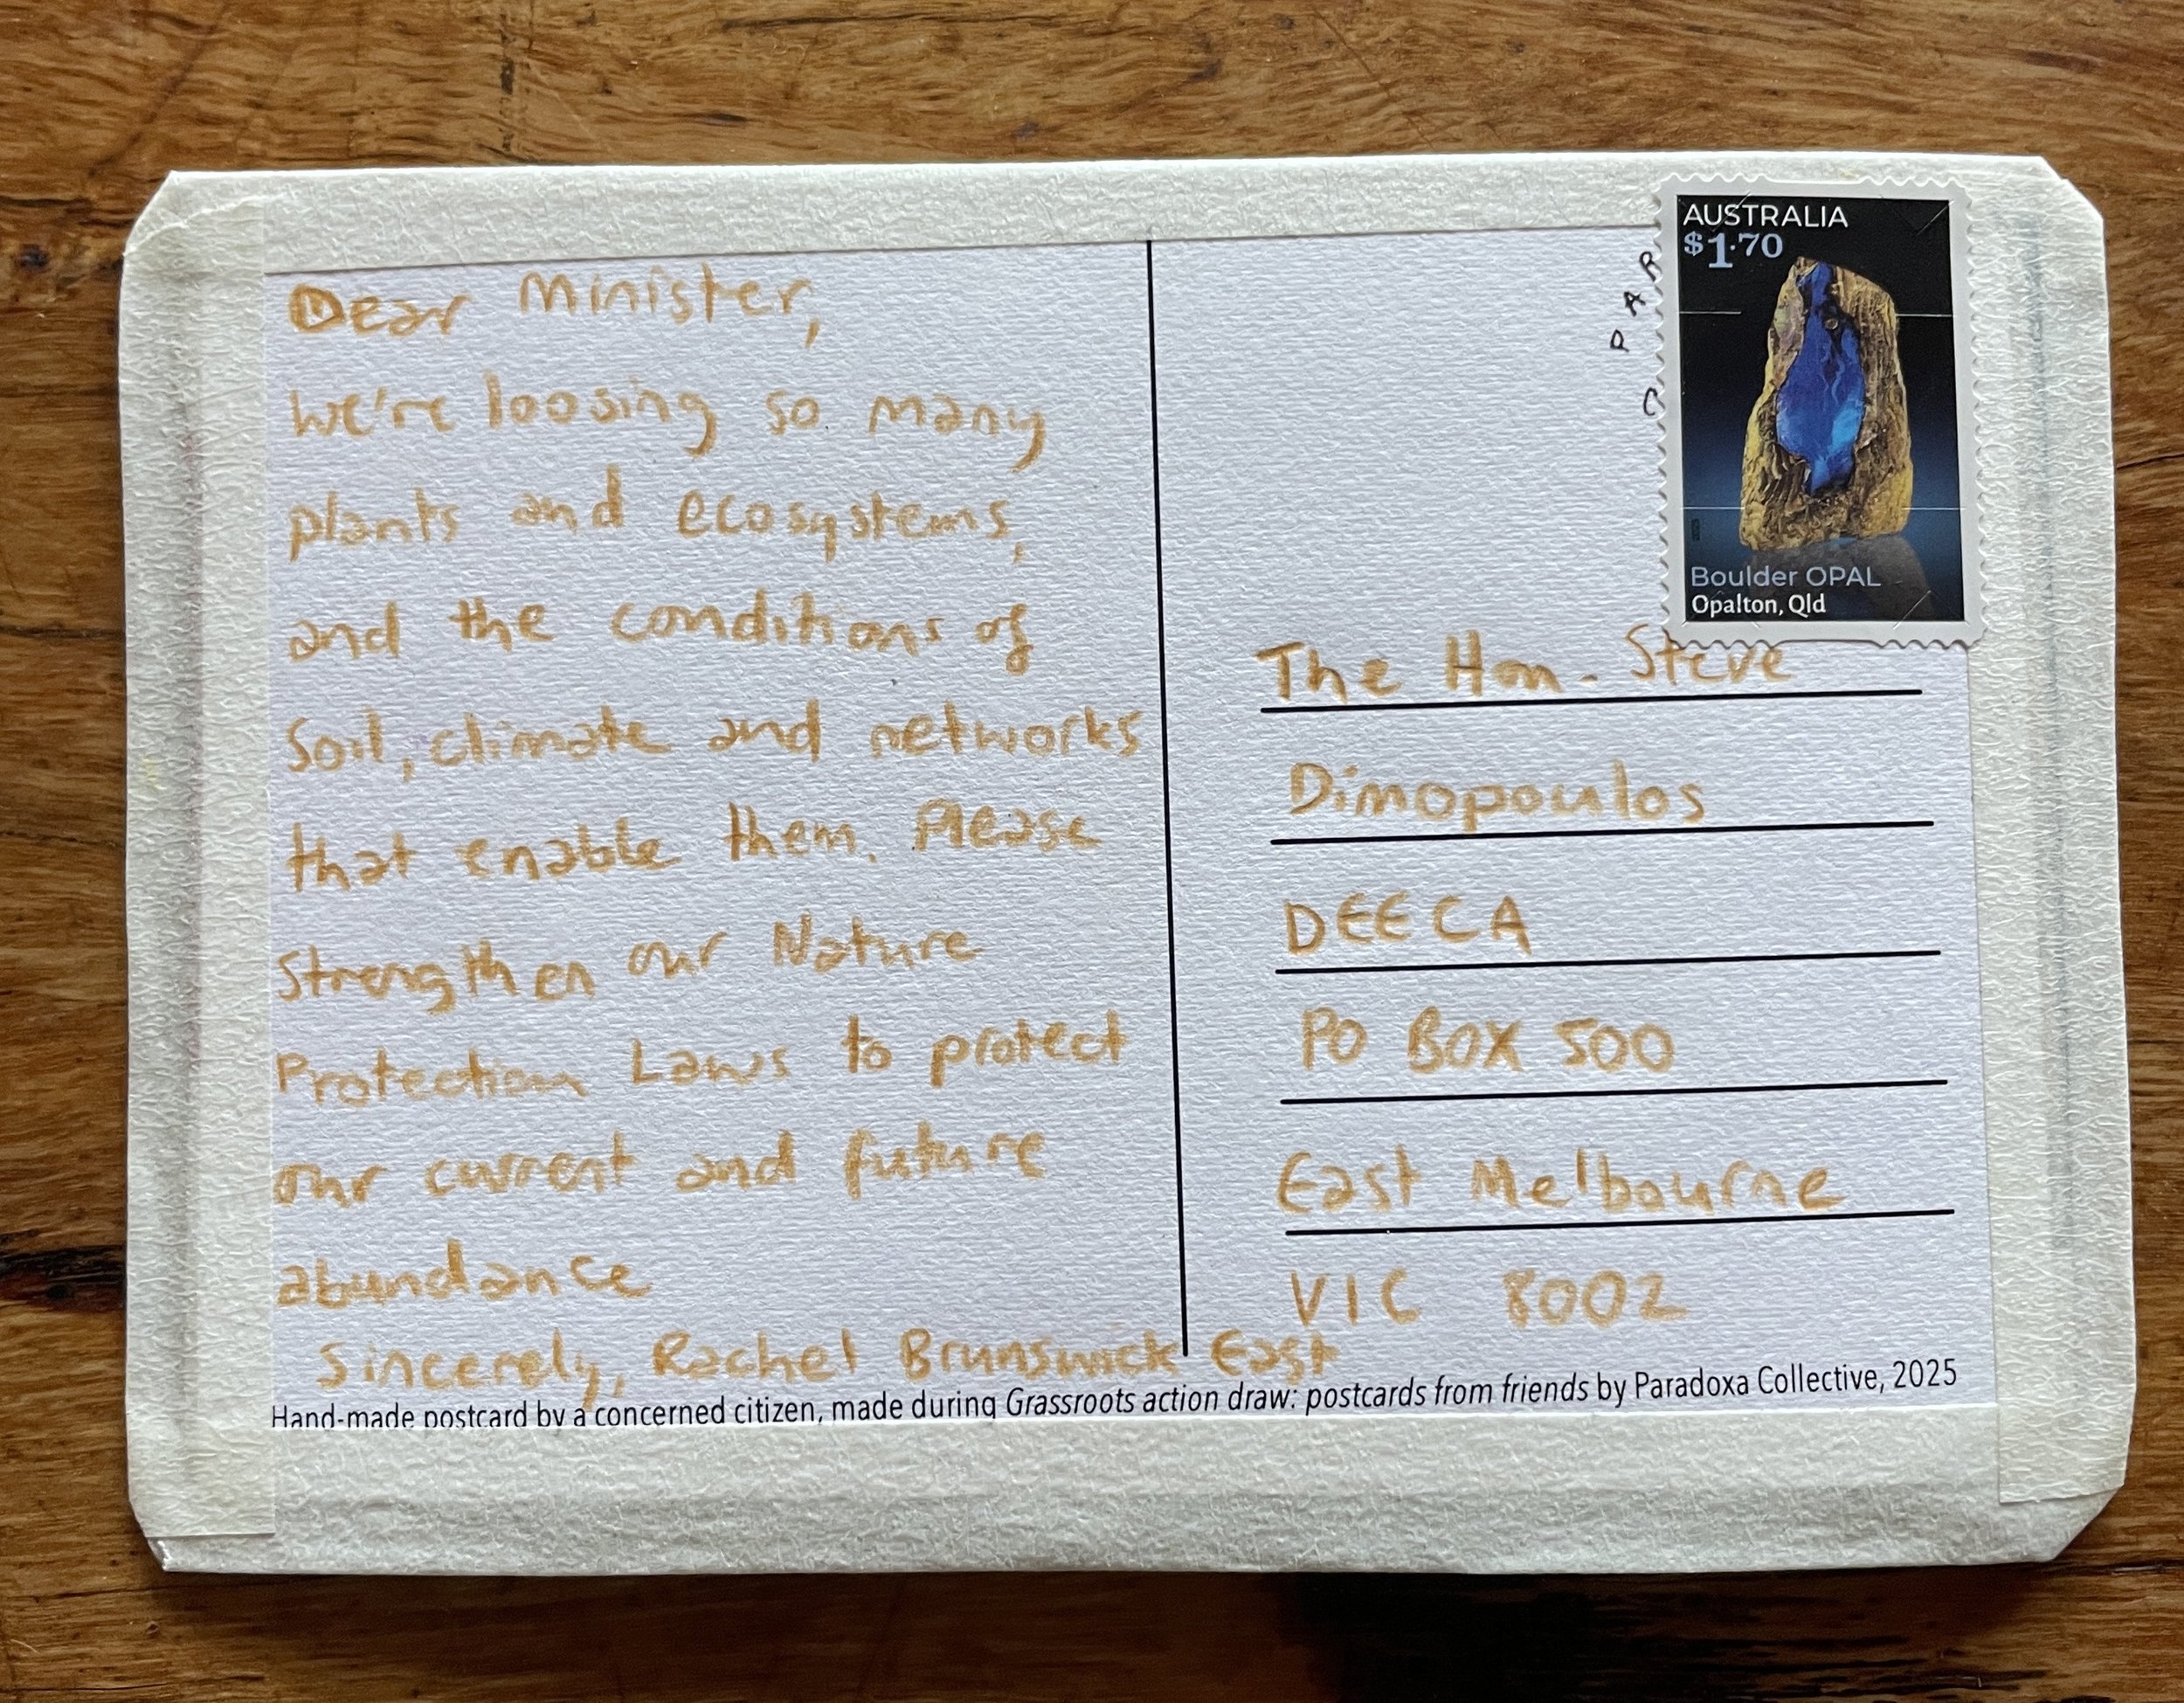 Dear Minister,
We're loosing so many
plants and ecosystems,
and the conditions of
soil, climate and networks
that enable them. Please
Strengthen our Nature
Protection Laws to protect
our current and future
abundance
Sincerely, Rachel Brunswick East
AUSTRALIA
$1.70
Boulder OPAL
Opalton, Qld
The Hon. Steve
Dimopoulos
DEECA
PO BOX 500
East Melbourne
VIC 8002
Hand-made postcard by a concerned citizen, made during Grassroots action draw: postcards from friends by Paradoxa Collective, 2025